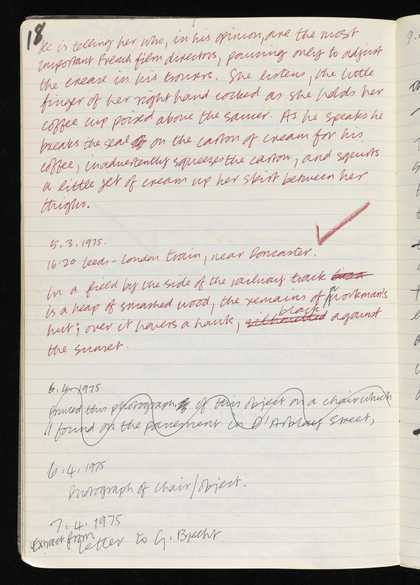 18
He is telling her who, in his opinion, are the most
important French film directors, pausing only to adjust
the crease in his trousers. She listens, the little
finger of her right hand cocked as she holds her
coffee cup poised above the saucer. As he speaks he
breaks the seal on the carton of cream for his
coffee, inadvertently squeezes the carton, and squirts
a little jet of cream up her skirt between her
thighs.
5.3.1975.
16.20 Leeds-London train, near Doncaster.
In a field by the side of the railway track
is a heap of smashed wood, the remains of a workman's
hut; over it hovers a hawk, silhouetted black against
the sunset.
6.4.1975
Printed this photograph of this object on a chair which
I found on the pavement in D'Arblay Street,
6.4.1975
Photograph of chair/object.
7.4.1975
Extract from
letter to G. Brecht